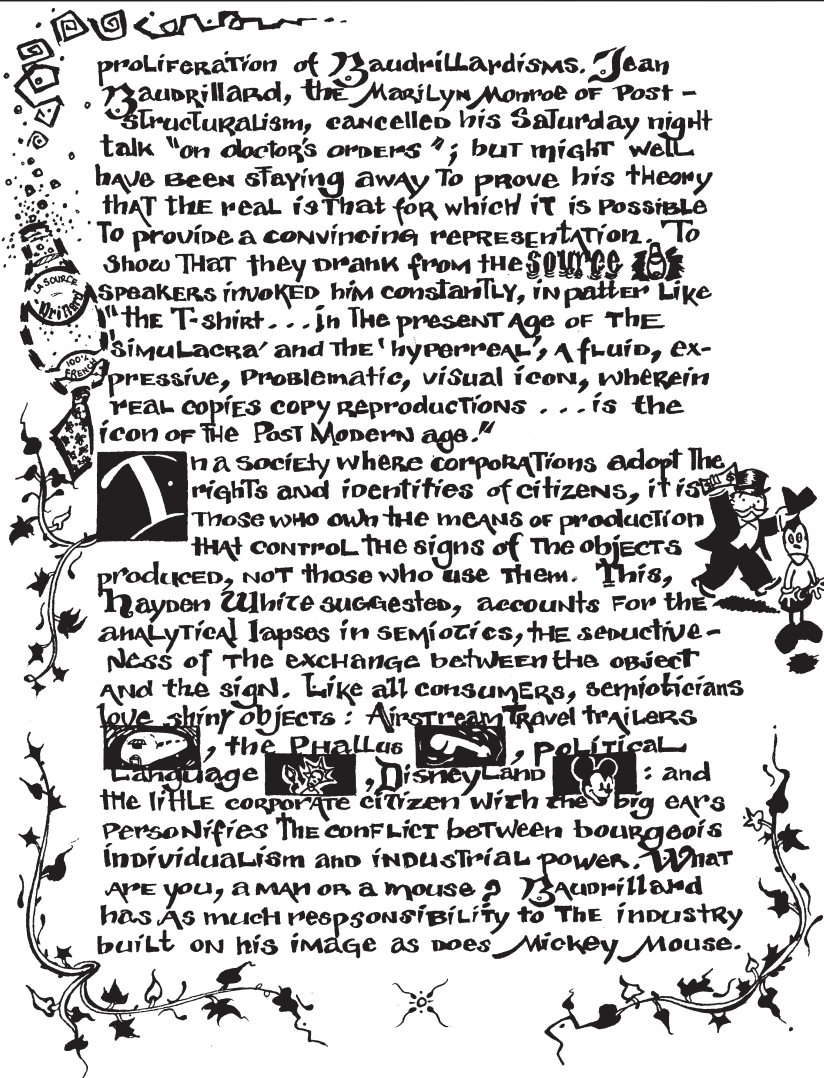 proliferation of Baudrillardisms. Jean
Baudrillard, the Marilyn Monroe of Post-
structuralism, cancelled his Saturday night
talk "on doctor's orders"; but might well
have been staying away to prove his theory
that the real is that for which it is possible
to provide a convincing representation. To
show that they drank from the source
LA SOURCE
speakers invoked him constantly, in patter like
"the T-shirt...in the present age of the
'simulacra' and the 'hyperreal', a fluid, ex-
100% FRENCH
pressive, problematic, visual icon, wherein
real copies copy reproductions...is the
icon of the Post Modern age."
In a society where corporations adopt the
rights and identities of citizens, it is
those who own the means of production
that control the signs of the objects
produced, not those who use them. This,
Hayden White suggested, accounts for the
analytical lapses in semiotics, the seductive-
ness of the exchange between the object
and the sign. Like all consumers, semioticians
love shiny objects: Airstream Travel trailers
, the Phallus , political
Language , Disneyland : and
the little corporate citizen with the big ears
personifies the conflict between bourgeois
individualism and industrial power. What
are you, a man or a mouse? Baudrillard
has as much respsonsibility to the industry
built on his image as does Mickey Mouse.